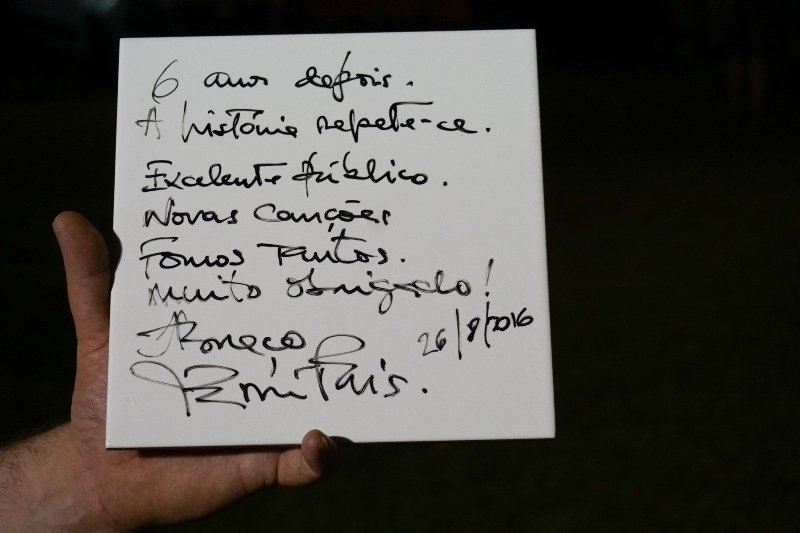 6 anos depois.
A história repete-se.
Excelente público.
Novas canções
Fomos tantos.
muito obrigado!
Abraço
26/8/2016